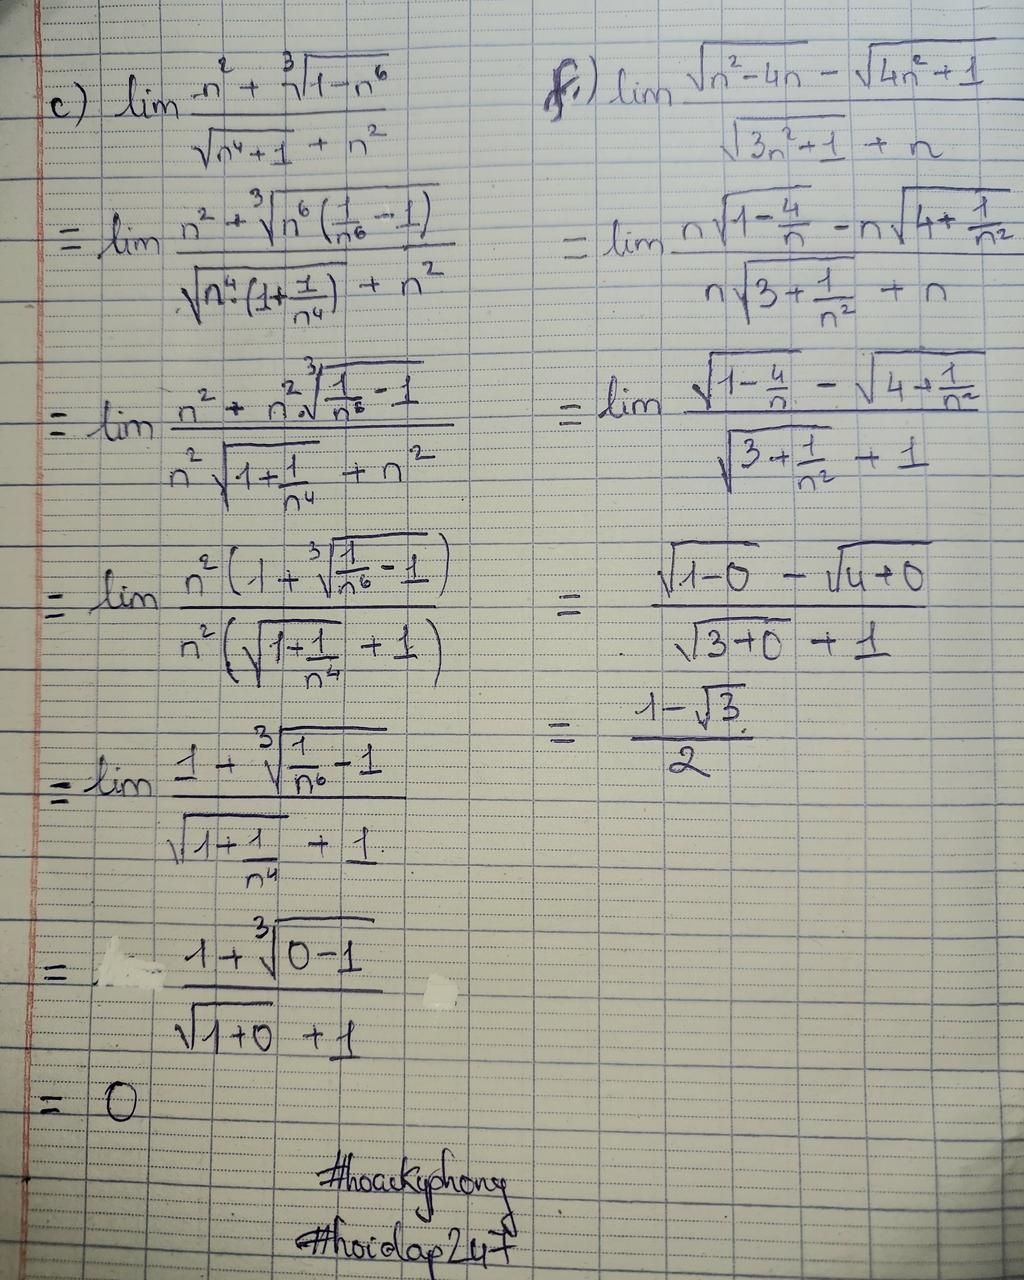 c) lim (n² + ∛(1-n⁶)) / (√(n⁴+1) + n²)
= lim (n² + ∛(n⁶(1/n⁶ - 1))) / (√(n⁴·(1+1/n⁴)) + n²)
= lim (n² + n²·∛(1/n⁶ - 1)) / (n²√(1+1/n⁴) + n²)
= lim (n²(1 + ∛(1/n⁶ - 1))) / (n²(√(1+1/n⁴) + 1))
= lim (1 + ∛(1/n⁶ - 1)) / (√(1+1/n⁴) + 1)
= (1 + ∛(0-1)) / (√(1+0) + 1)
= 0
f.) lim (√(n²-4n) - √(4n²+1)) / (√(3n²+1) + n)
= lim (n√(1-4/n) - n√(4+1/n²)) / (n√(3+1/n²) + n)
= lim (√(1-4/n) - √(4+1/n²)) / (√(3+1/n²) + 1)
= (√(1-0) - √(4+0)) / (√(3+0) + 1)
= (1-√3) / 2
#hoackyphong
#hoidap247